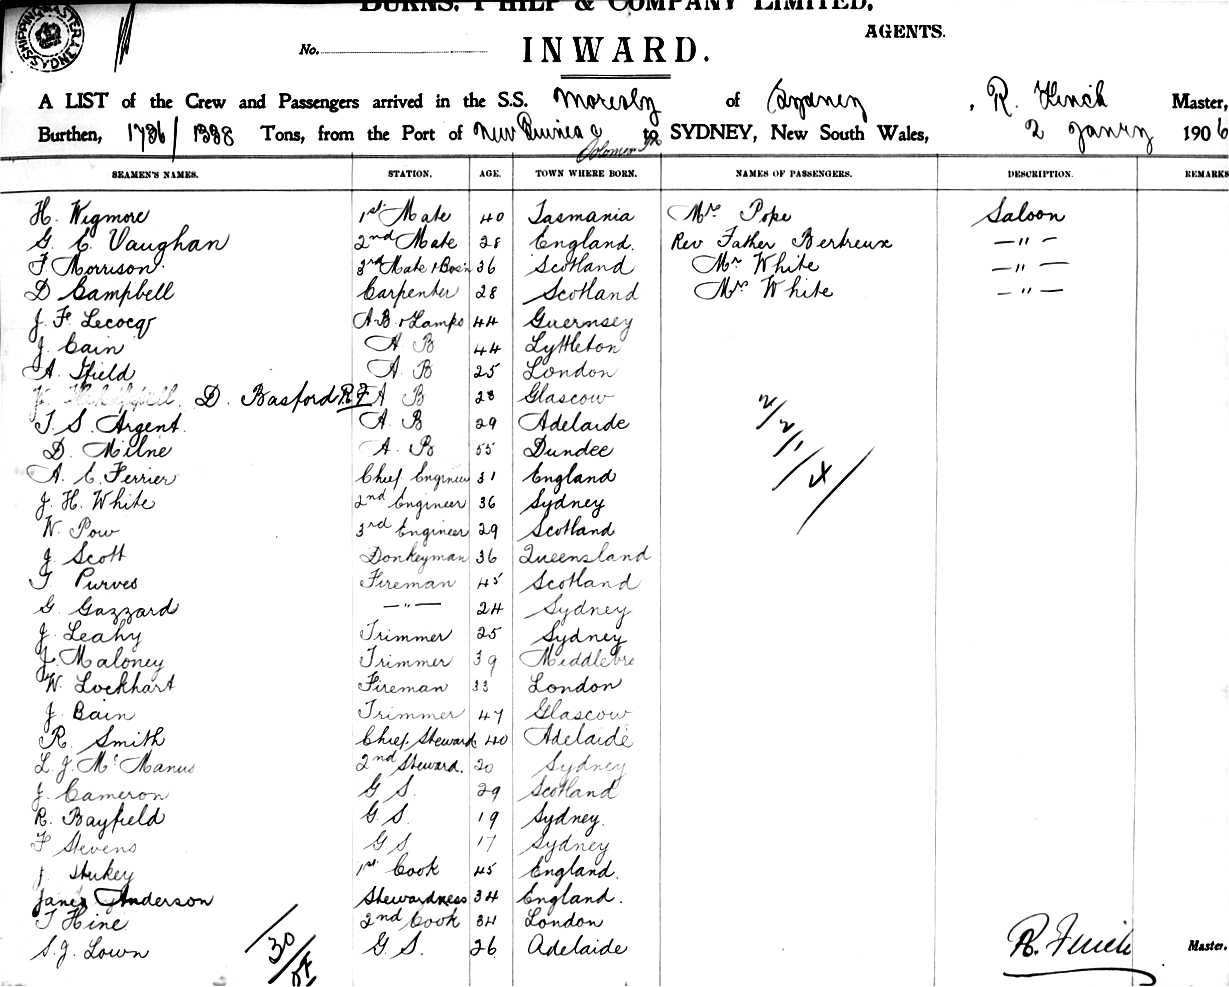 SHIPPING MASTER SYDNEY
BURNS, PHILP & COMPANY LIMITED,
AGENTS.
No.
INWARD.
A LIST of the Crew and Passengers arrived in the S.S. Moresby of Sydney, R. Finch Master,
Burthen, 1736/1388 Tons, from the Port of New Guinea & to SYDNEY, New South Wales, 2 Janry 1906
Solomon Is
SEAMEN'S NAMES. STATION. AGE. TOWN WHERE BORN. NAMES OF PASSENGERS. DESCRIPTION. REMARKS
H. Wigmore 1st Mate 40 Tasmania Mrs Pope Saloon
G. C. Vaughan 2nd Mate 28 England. Rev Father Bertreux —"—
F Morrison 3rd Mate & Bos'n 36 Scotland Mr White —"—
D Campbell Carpenter 28 Scotland Mrs White —"—
J. F. Lecocq A.B & Lamps 44 Guernsey
J. Cain A B 44 Lyttleton
A. Ifield A B 25 London
D. Basford R.F A B 28 Glascow
T. S. Argent. A. B 29 Adelaide
D. Milne A. B 55 Dundee
A. E. Ferrier Chief Engineer 31 England
J. H. White 2nd Engineer 36 Sydney
W. Pow 3rd Engineer 29 Scotland
J Scott Donkeyman 36 Queensland
T Purves Fireman 45 Scotland
G. Gazzard —"— 24 Sydney
J. Leahy Trimmer 25 Sydney
J. Maloney Trimmer 39 Middlebre
W. Lockhart Fireman 33 London
J. Bain Trimmer 47 Glascow
R. Smith Chief Steward 40 Adelaide
L. J. McManus 2nd Steward. 20 Sydney
J. Cameron G S. 29 Scotland
R. Bayfield G S. 19 Sydney.
F Stevens G S 17 Sydney
J. Stukey 1st Cook 45 England.
Janet Anderson Stewardess 34 England.
T Hine 2nd Cook 34 London
S. J. Lown G. S. 26 Adelaide
30
R. Finch Master.